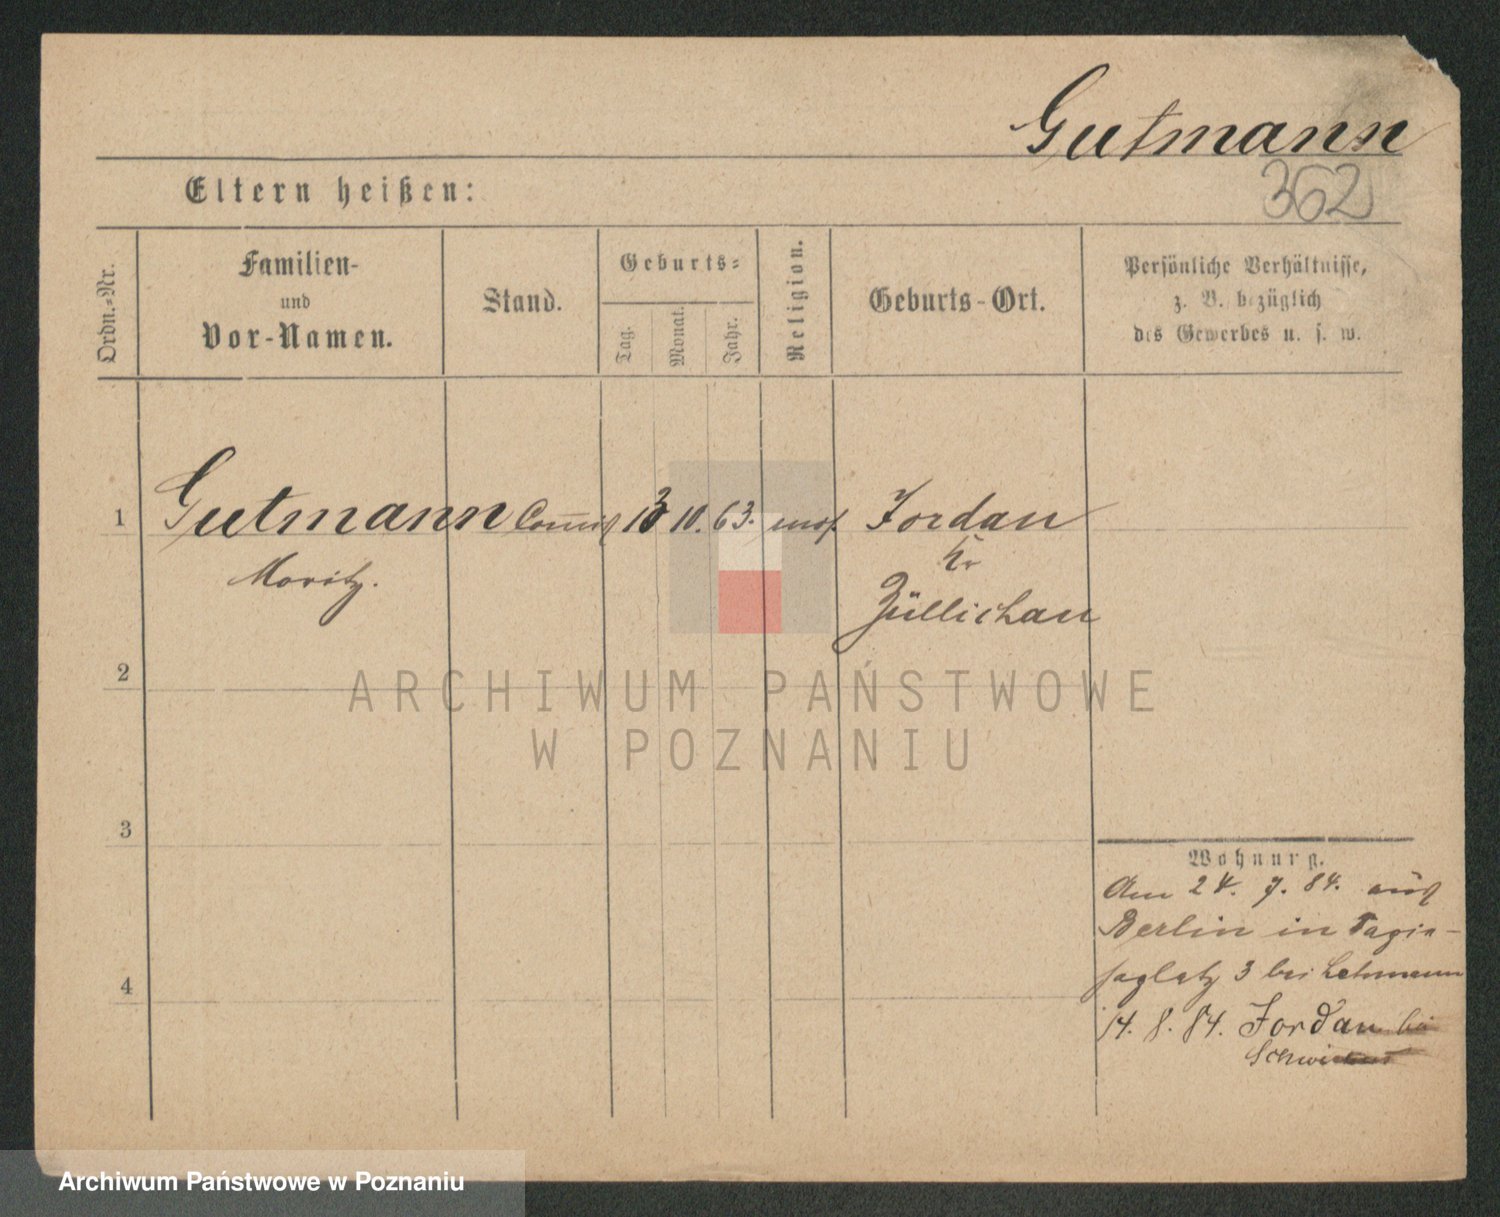 Gutmann
362
Eltern heißen:
Ordn.-Nr.
Familien-
und
Vor-Namen.
Stand.
Geburts-
Tag.
Monat.
Jahr.
Religion.
Geburts-Ort.
Persönliche Verhältnisse,
z. B. bezüglich
des Gewerbes u. s. w.
1 Gutmann 10. 63. mos. Jordan
Moritz.
Kr
Züllichau
2
3
4
Wohnung.
Am 24. 7. 84. aus
Berlin in
3 bei Lehmann
14. 8. 84. Jordan bei
ARCHIWUM PAŃSTWOWE
W POZNANIU
Archiwum Państwowe w Poznaniu